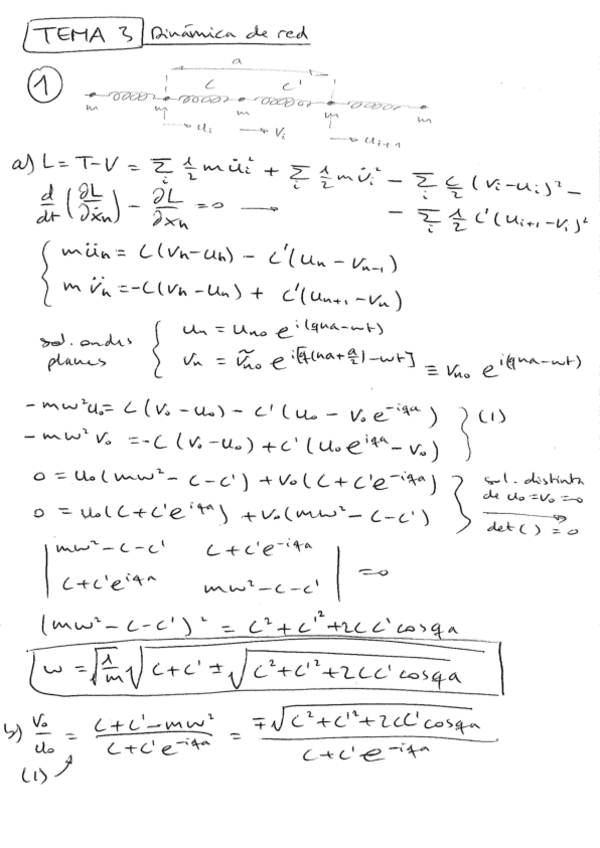 TEMA 3 Dinámica de red
1
a
C C'
m m m m m
u_i v_i u_{i+1}
a) L = T - V = Σ_i 1/2 m u̇_i² + Σ_i 1/2 m v̇_i² - Σ_i C/2 (v_i - u_i)² -
d/dt (∂L/∂ẋ_n) - ∂L/∂x_n = 0 → - Σ_i 1/2 C' (u_{i+1} - v_i)²
{ m ü_n = C(v_n - u_n) - C'(u_n - v_{n-1})
m v̈_n = -C(v_n - u_n) + C'(u_{n+1} - v_n)
sol. ondas planes { u_n = u_{no} e^{i(qna-wt)}
v_n = ṽ_{no} e^{i[q(na+a/2)-wt]} ≡ v_{no} e^{i(qna-wt)}
-mw²u_0 = C(v_0 - u_0) - C'(u_0 - v_0 e^{-iqa}) } (1)
-mw²v_0 = -C(v_0 - u_0) + C'(u_0 e^{iqa} - v_0)
0 = u_0(mw² - C - C') + v_0(C + C'e^{-iqa}) } sol. distinta
0 = u_0(C + C'e^{iqa}) + v_0(mw² - C - C') de u_0 = v_0 = 0
det( ) = 0
| mw² - C - C' C + C'e^{-iqa} |
| C + C'e^{iqa} mw² - C - C' | = 0
(mw² - C - C')² = C² + C'² + 2CC' cos qa
w = √(1/m) √(C + C' ± √(C² + C'² + 2CC' cos qa))
b) v_0/u_0 = (C + C' - mw²)/(C + C'e^{-iqa}) = ∓√(C² + C'² + 2CC' cos qa)/(C + C'e^{-iqa})
(1)